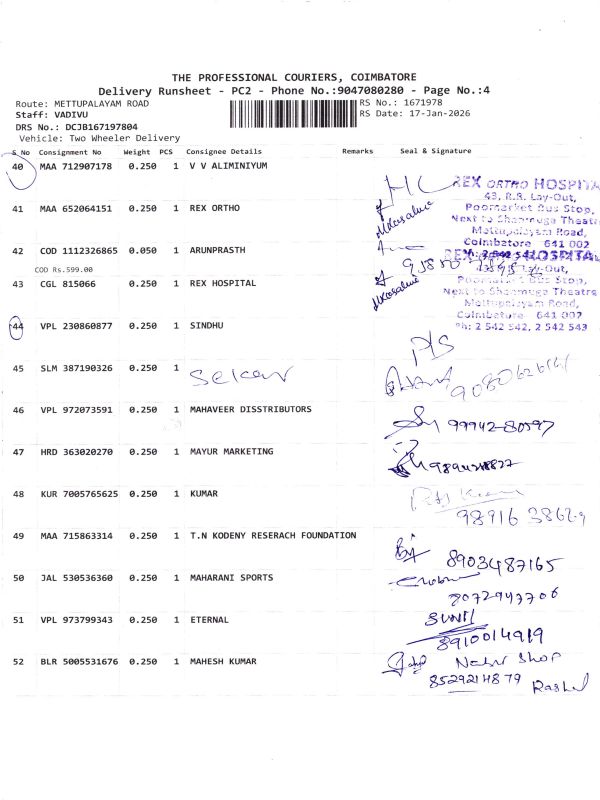 THE PROFESSIONAL COURIERS, COIMBATORE
Delivery Runsheet - PC2 - Phone No.:9047080280 - Page No.:4
Route: METTUPALAYAM ROAD
RS No.: 1671978
Staff: VADIVU
RS Date: 17-Jan-2026
DRS No.: DCJB167197804
Vehicle: Two Wheeler Delivery
S No Consignment No Weight PCS Consignee Details Remarks Seal & Signature
40 MAA 712907178 0.250 1 V V ALIMINIYUM
REX ORTHO HOSPITA
43, R.R. Lay-Out,
41 MAA 652064151 0.250 1 REX ORTHO
Poomarket Bus Stop,
Next to Shanmuga Theatre
Mettupalayam Road,
Coimbatore 641 002
42 COD 1112326865 0.050 1 ARUNPRASTH
COD Rs.599.00
43 CGL 815066 0.250 1 REX HOSPITAL
Poomarket Bus Stop,
Next to Shanmuga Theatre
Mettupalayam Road,
Coimbatore 641 002
Ph: 2 542 542, 2 542 543
44 VPL 230860877 0.250 1 SINDHU
P/S
45 SLM 387190326 0.250 1 Sekar
46 VPL 972073591 0.250 1 MAHAVEER DISSTRIBUTORS
99942-80597
47 HRD 363020270 0.250 1 MAYUR MARKETING
48 KUR 7005765625 0.250 1 KUMAR
49 MAA 715863314 0.250 1 T.N KODENY RESERACH FOUNDATION
8903487165
50 JAL 530536360 0.250 1 MAHARANI SPORTS
8072947706
51 VPL 973799343 0.250 1 ETERNAL
SUNIL
8910014919
52 BLR 5005531676 0.250 1 MAHESH KUMAR
Shop
8529214879